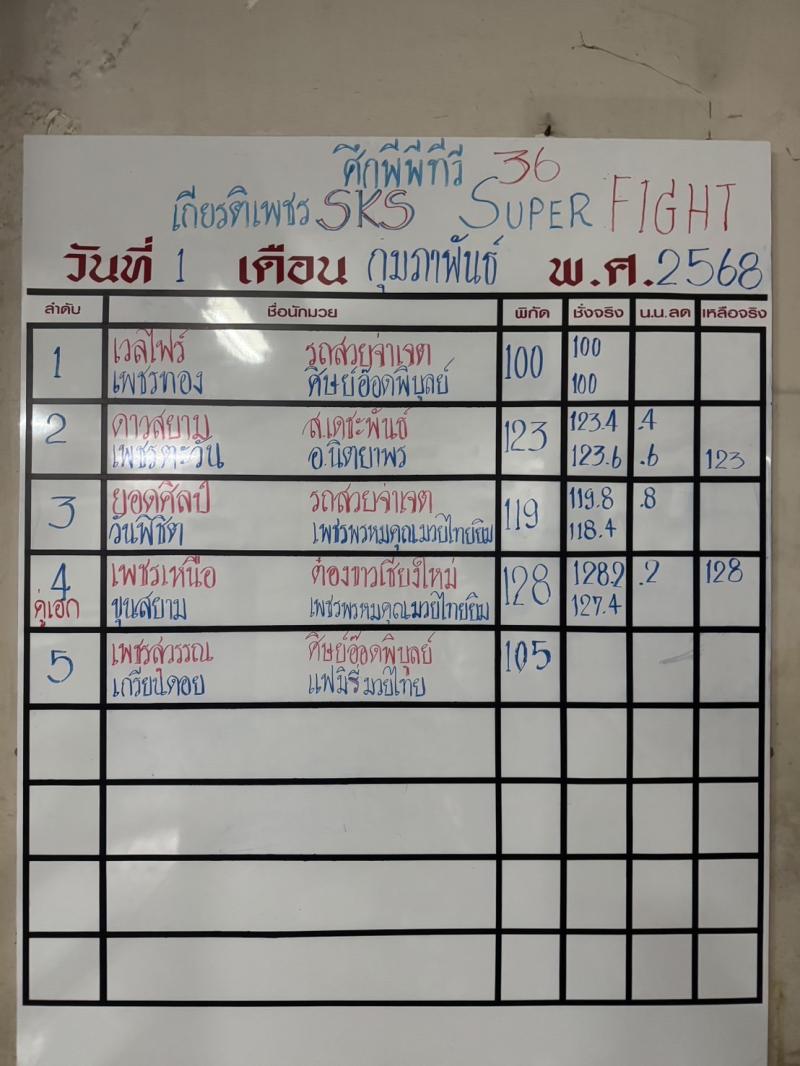 ศึกพีพีทีวี 36
เกียรติเพชร SKS SUPER FIGHT
วันที่ 1 เดือน กุมภาพันธ์ พ.ศ. 2568
ลำดับ ชื่อนักมวย พิกัด ชั่งจริง น.น.ลด เหลือจริง
1 เวลไฟร์ รถสวยจ่าเจต 100 100
เพชรทอง ศิษย์อ๊อดพิบูลย์ 100
2 ดาวสยาม ส.เดชะพันธ์ 123 123.4 .4
เพชรตะวัน อ.นิตยาพร 123.6 .6 123
3 ยอดศิลป์ รถสวยจ่าเจต 119 119.8 .8
วันพิชิต เพชรพรหมคุณมวยไทยยิม 118.4
4 เพชรเหนือ ต้องขาวเชียงใหม่ 128 128.2 .2 128
คู่เอก ขุนสยาม เพชรพรหมคุณมวยไทยยิม 127.4
5 เพชรสุวรรณ ศิษย์อ๊อดพิบูลย์ 105
เกวียนดอย แฟมิรี่มวยไทย